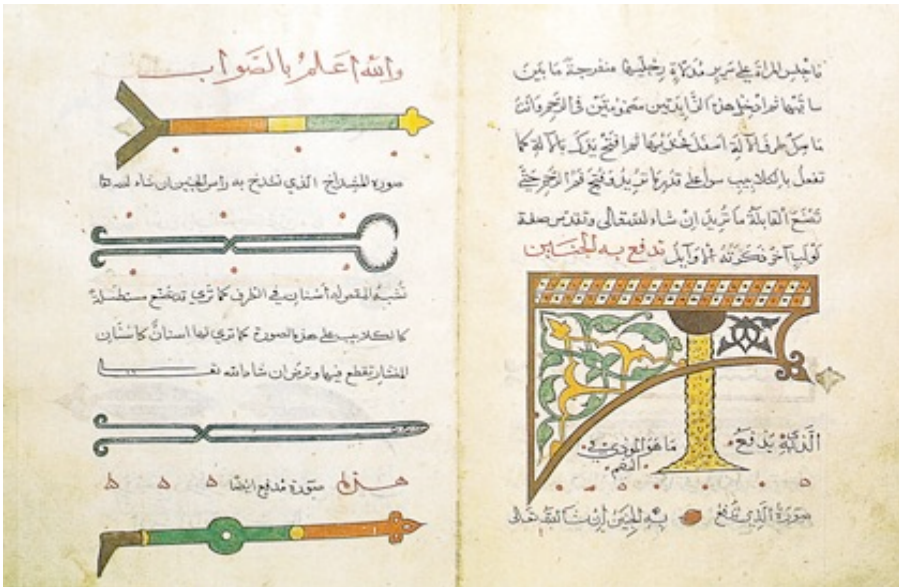 فاجلس المراة على سرير مدلاة رجليها منفرجة ما بين
ساقيها ثم ادخل هذه الزايدتين مضمومتين في الرحم وانت
ماسك طرف الالة اسفل فخذيها ثم افتح يدك بالالة كما
تفعل بالكلاليب سوا على قدر ما تريد وفتح فم الرحم حتى
تصنع القابلة ما تريد ان شاء الله تعالى وتقدم صفة
لولب آخر ذكرته الاوايل تدفع به الجنين
الذي يدفع ما هو الموذي في
الفم
صورة الذي تدفع به الجنين ان شا الله تعالى
والله اعلم بالصواب
صورة المشداخ الذي تشدخ به راس الجنين ان شاء الله
تشبه المقص له أسنان في الطرف كما تري وقد تصنع مستطيلة
كالكلاليب على هذه الصورة كما تري لها اسنان كاسنان
المنشار تقطع فيها وترض ان شاء الله تعا
هذه صورة مدفع ايضا